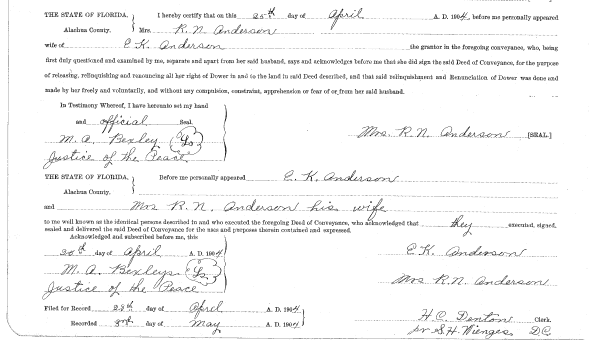 THE STATE OF FLORIDA. } I hereby certify that on this 25th day of April A. D. 1904, before me personally appeared
Alachua County. } Mrs. R. N. Anderson
wife of E K. Anderson the grantor in the foregoing conveyance, who, being
first duly questioned and examined by me, separate and apart from her said husband, says and acknowledges before me that she did sign the said Deed of Conveyance, for the purpose
of releasing, relinquishing and renouncing all her right of Dower in and to the land in said Deed described, and that said relinquishment and Renunciation of Dower was done and
made by her freely and voluntarily, and without any compulsion, constraint, apprehension or fear of or from her said husband.
In Testimony Whereof, I have hereunto set my hand
and official Seal.
M. A. Bexley Ls Mrs. R. N. Anderson [SEAL]
Justice of the Peace
THE STATE OF FLORIDA. } Before me personally appeared E. K. Anderson
Alachua County.
and Mrs R. N. Anderson his wife
to me well known as the identical persons described in and who executed the foregoing Deed of Conveyance, who acknowledged that they executed, signed,
sealed and delivered the said Deed of Conveyance for the uses and purposes therein contained and expressed.
Acknowledged and subscribed before me, this
day of April A. D. 1904 E K. Anderson
M. A. Bexleys Ls Mrs R. N. Anderson
Justice of the Peace
Filed for Record 28th day of April A. D. 1904 H C. Denton Clerk.
Recorded 3rd day of May A. D. 1904 S. H. Wienges D. C.